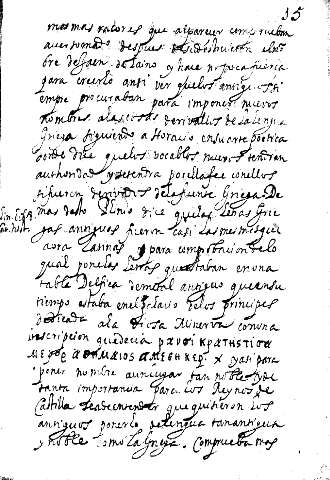 15
mas mas razones que al parecer
aver tomado despues de su destruicion el nom
bre de Jaen de Latino y hace no poca fuerça
para creerlo ansi ver que los antiguos si
empre procuraban para imponer nuevos
nombres a las cosas derivallos de la lengua
Griega siguiendo a Horacio en su arte poetica
donde dize que los vocablos nuevos tendran
authoridad y
si fueren derivados de la fuente Griega De
mas desto Plinio dice que las letras Grie
gas antiguas fueron casi las mesmas que
aora latinas y para comprobacion de lo
qual pone las letras que estaban en una
tabla Delfica de metal antiguo que en su
tiempo estaba en el palacio de los principes
dedicada a la Diosa Minerva con una
inscripcion que decia
y asi para
poner nombre a un lugar tan noble y de
tanta importancia para los Reynos de
Castilla se a de entender que quisieron los
antiguos ponerlo de lengua tan antigua
y noble como la Griega. Comprueba mas